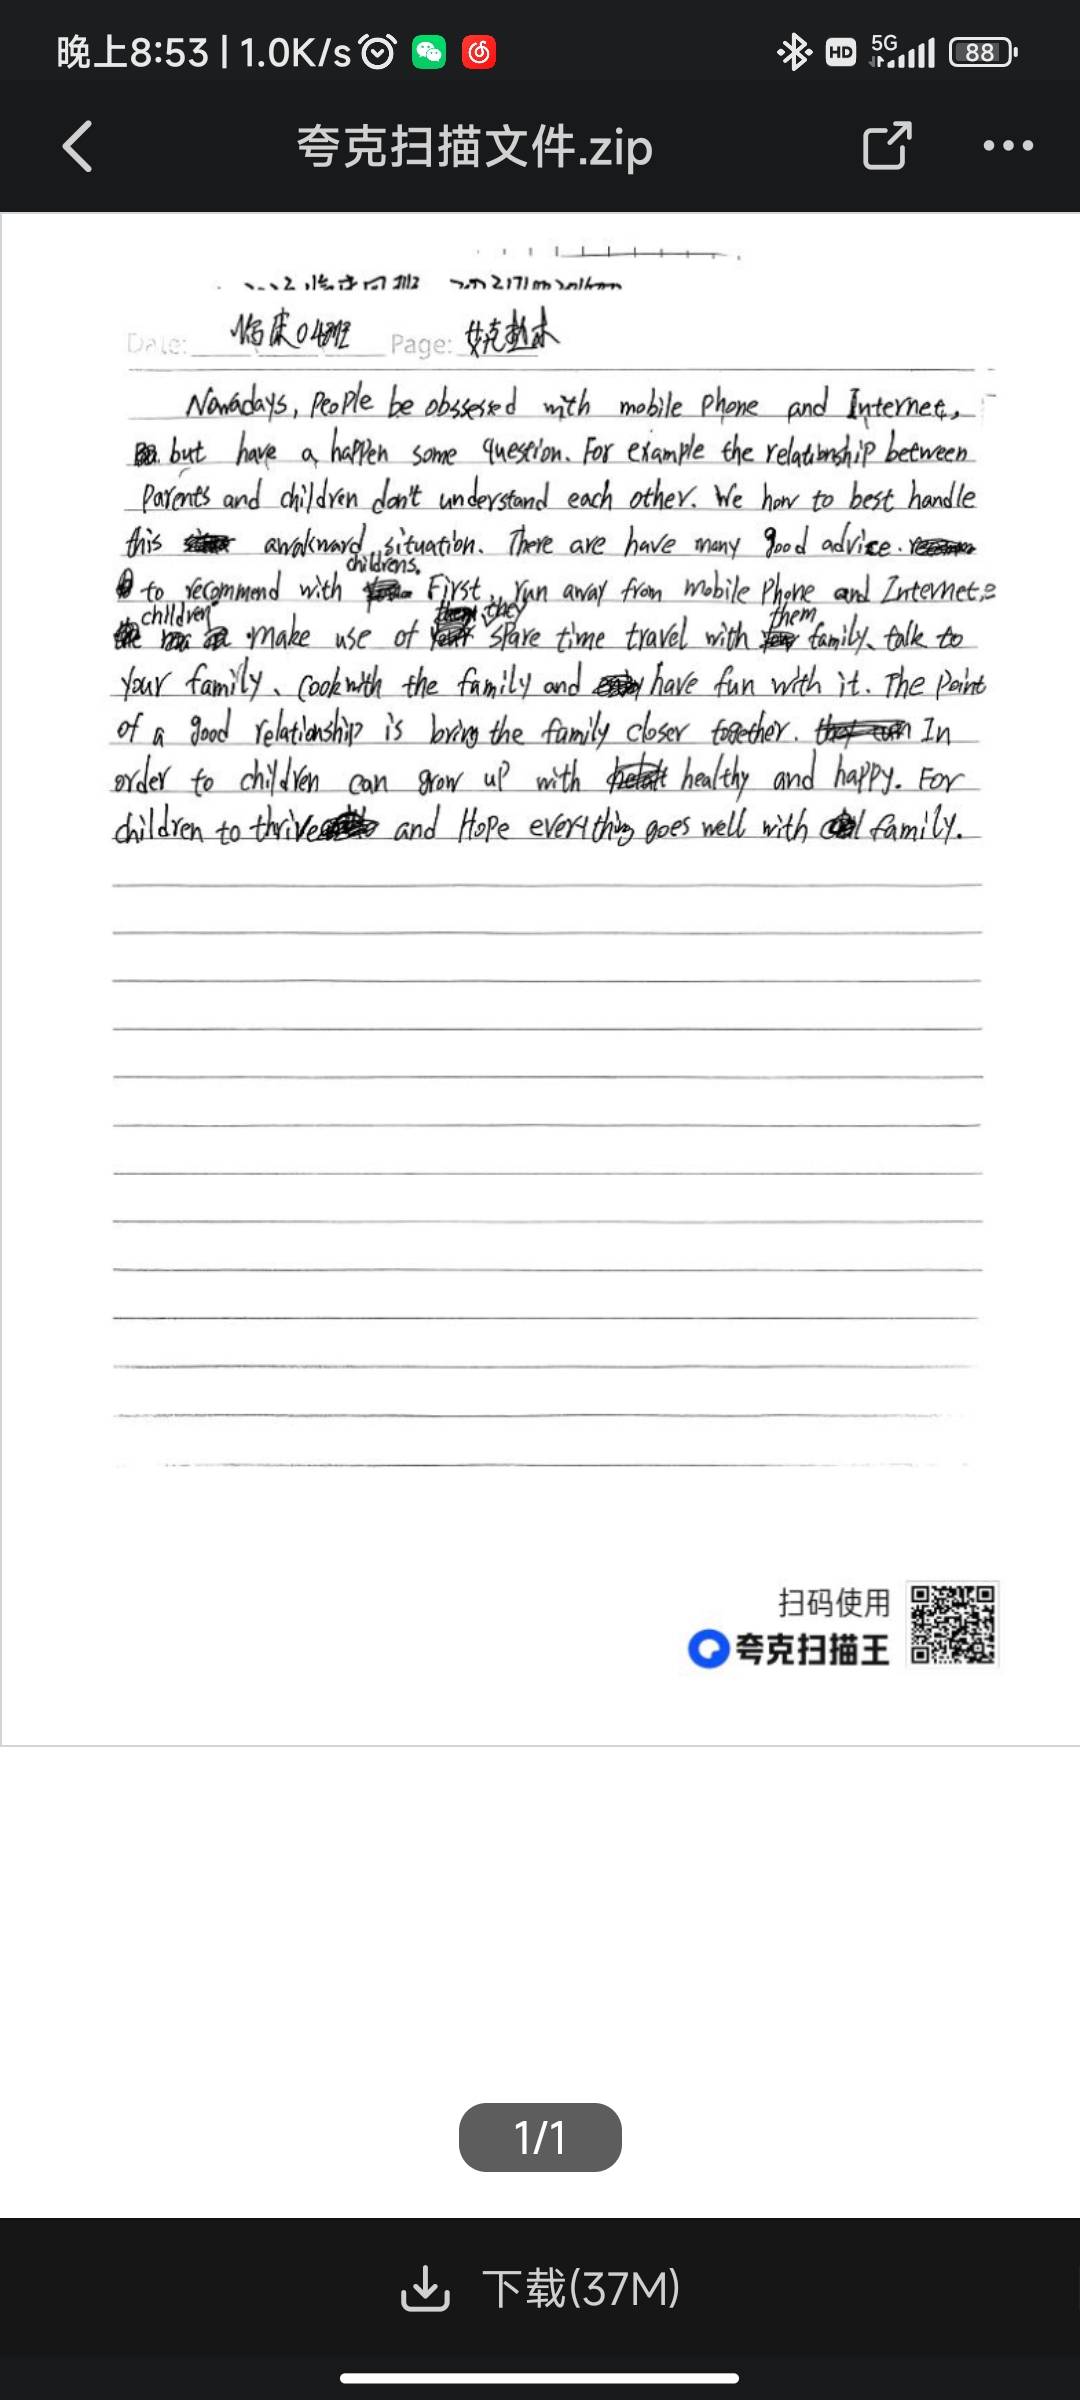 晚上8:53 | 1.0K/s
HD 5G 88
夸克扫描文件.zip
Date: 临床04班 Page:
Nowadays, People be obssesed with mobile Phone and Internet,
but have a happen some question. For example the relationship between
Parents and children don't understand each other. We how to best handle
this awakward situation. There are have many good advice.
childrens.
to recommend with First, run away from mobile Phone and Internet.
children they them
Make use of spare time travel with family、talk to
your family、Cook with the family and have fun with it. The Point
of a good relationship is bring the family closer together. In
order to children can grow up with healthy and happy. For
children to thrive and Hope everything goes well with family.
扫码使用
夸克扫描王
1/1
下载(37M)